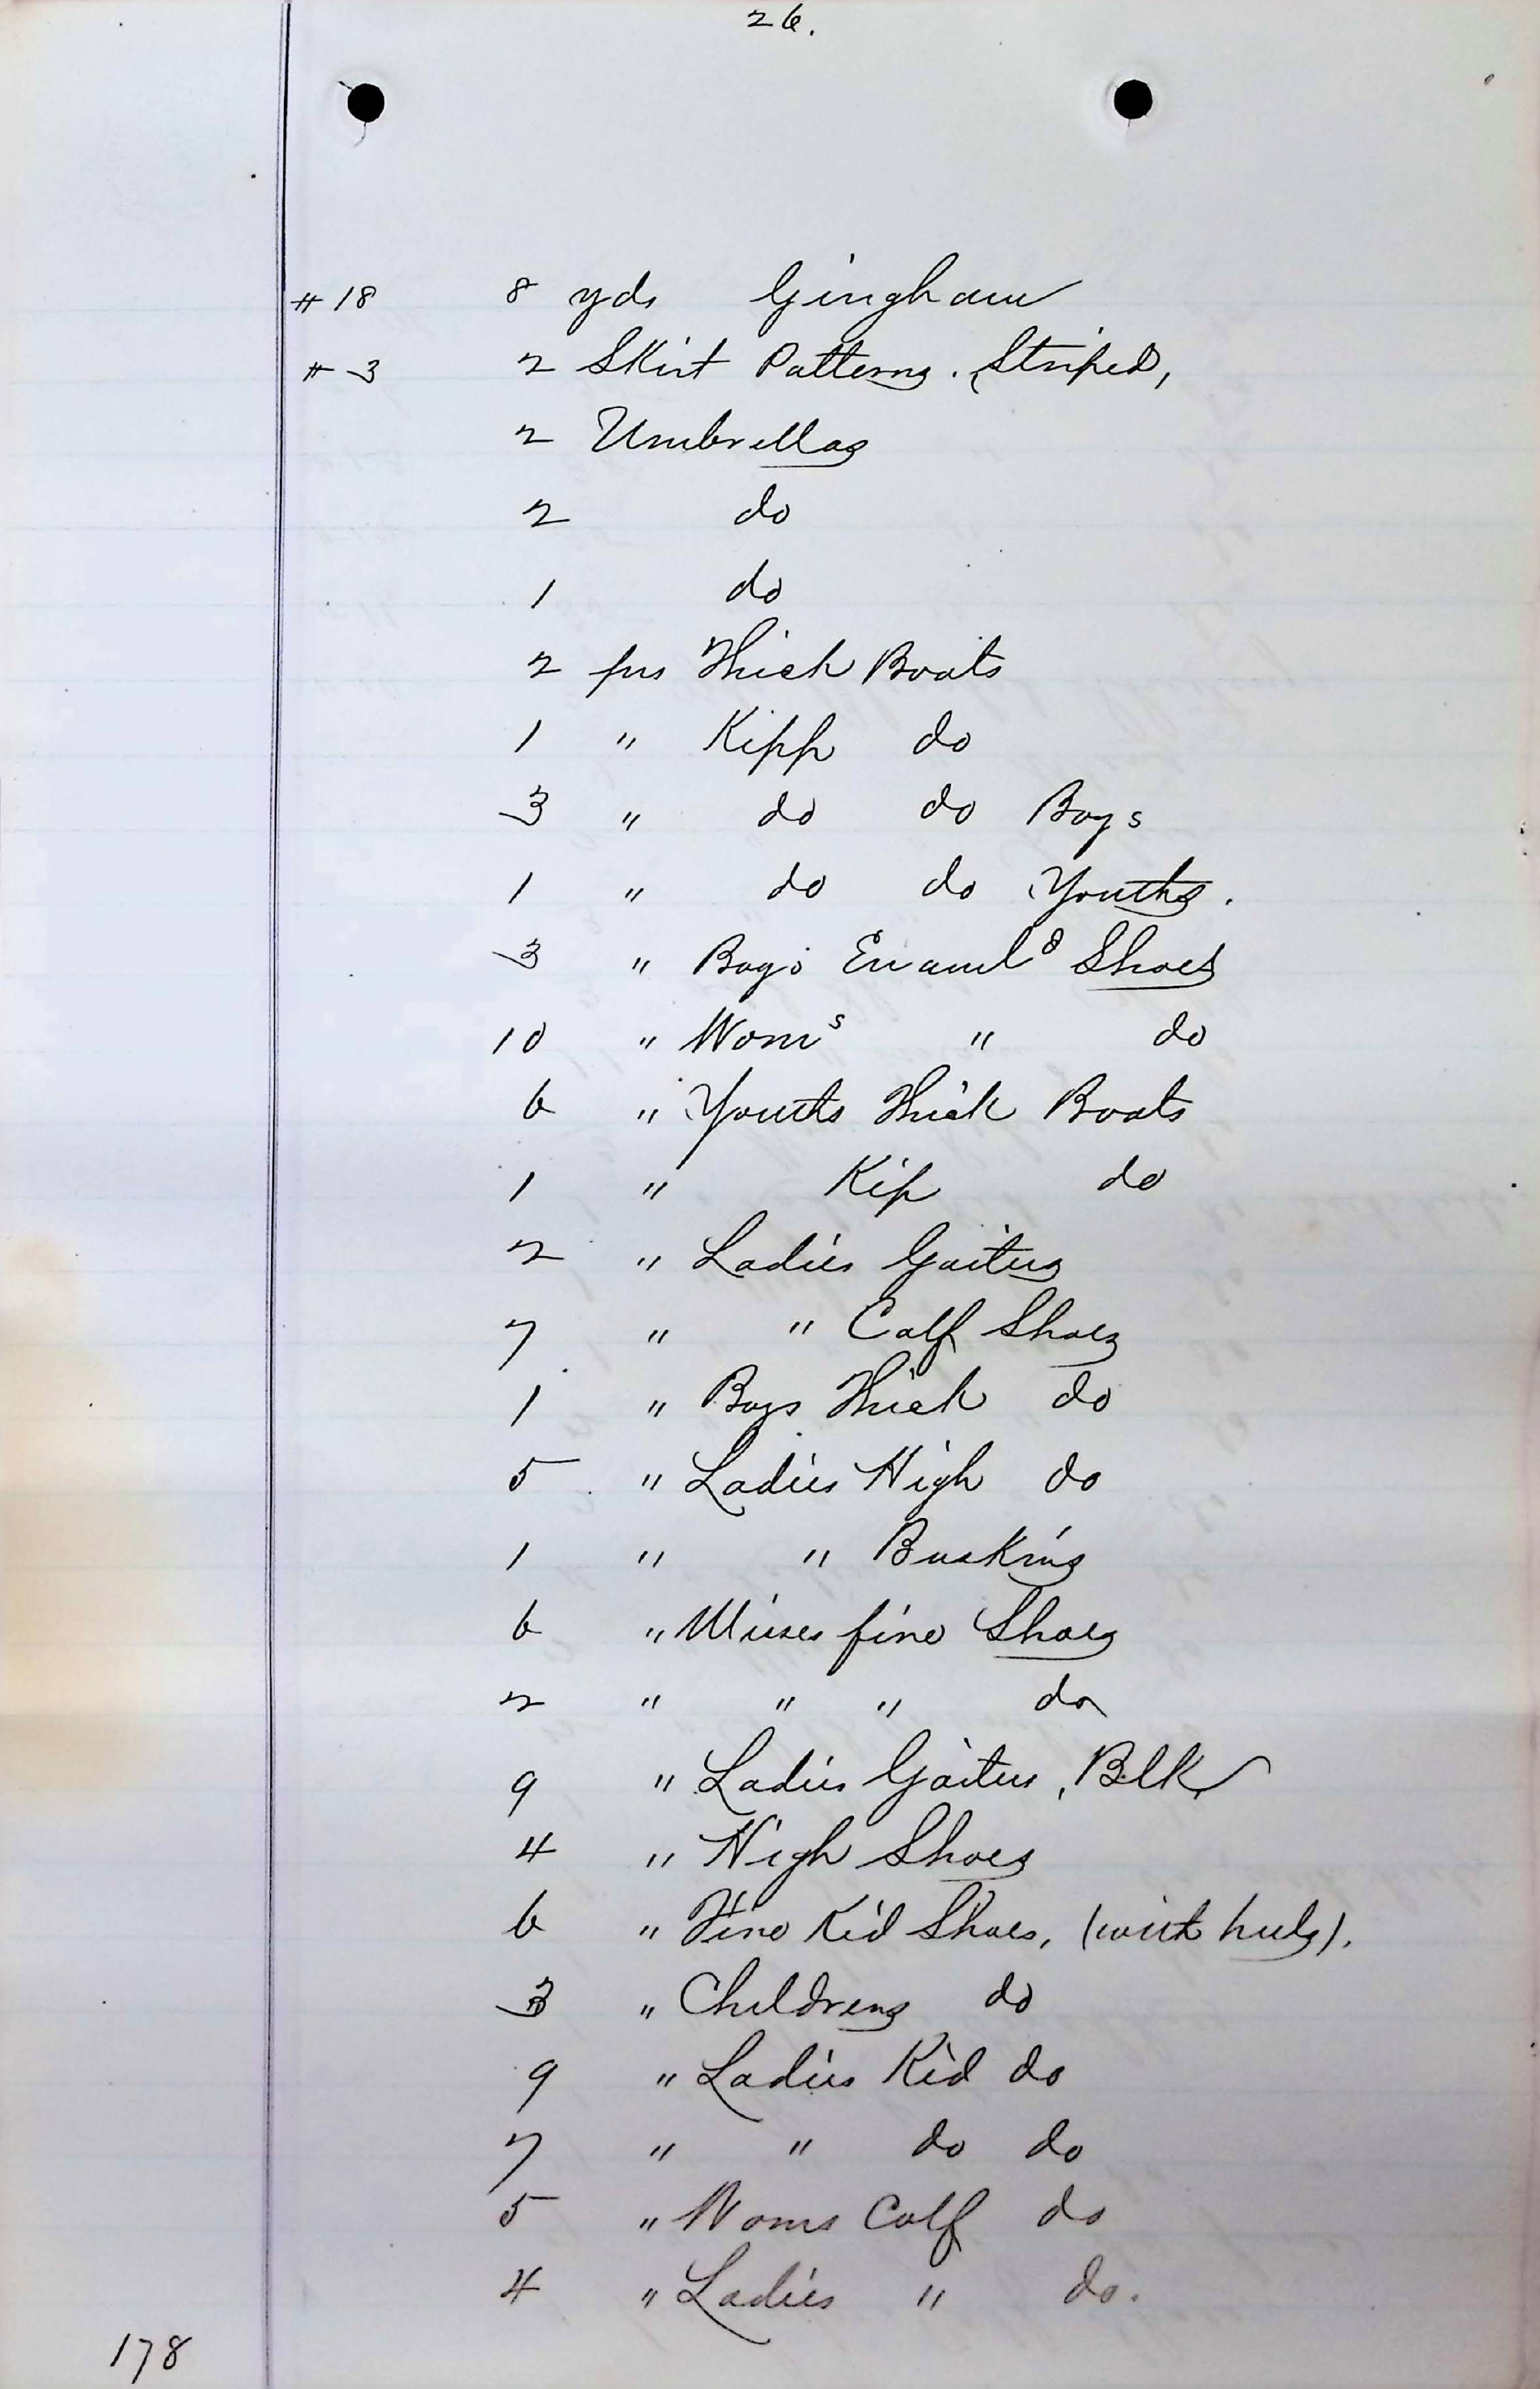 26.
# 18 8 yds Gingham
# 3 2 Skirt Patterns. Striped,
2 Umbrellas
2 do
1 do
2 prs Thick Boots
1 " Kipp do
3 " do do Boys
1 " do do Youths.
3 " Boys Enamld Shoes
10 " Woms " do
6 " Youths Thick Boots
1 " Kip do
2 " Ladies Gaiters
7 " " Calf Shoes
1 " Boys Thick do
5 " Ladies High do
1 " " Buskins
6 " Misses fine Shoes
2 " " " do
9 " Ladies Gaiters, Blk
4 " High Shoes
6 " Fine Kid Shoes, (with heels).
3 " Childrens do
9 " Ladies Kid do
7 " " do do
5 " Woms Calf do
4 " Ladies " do.
178